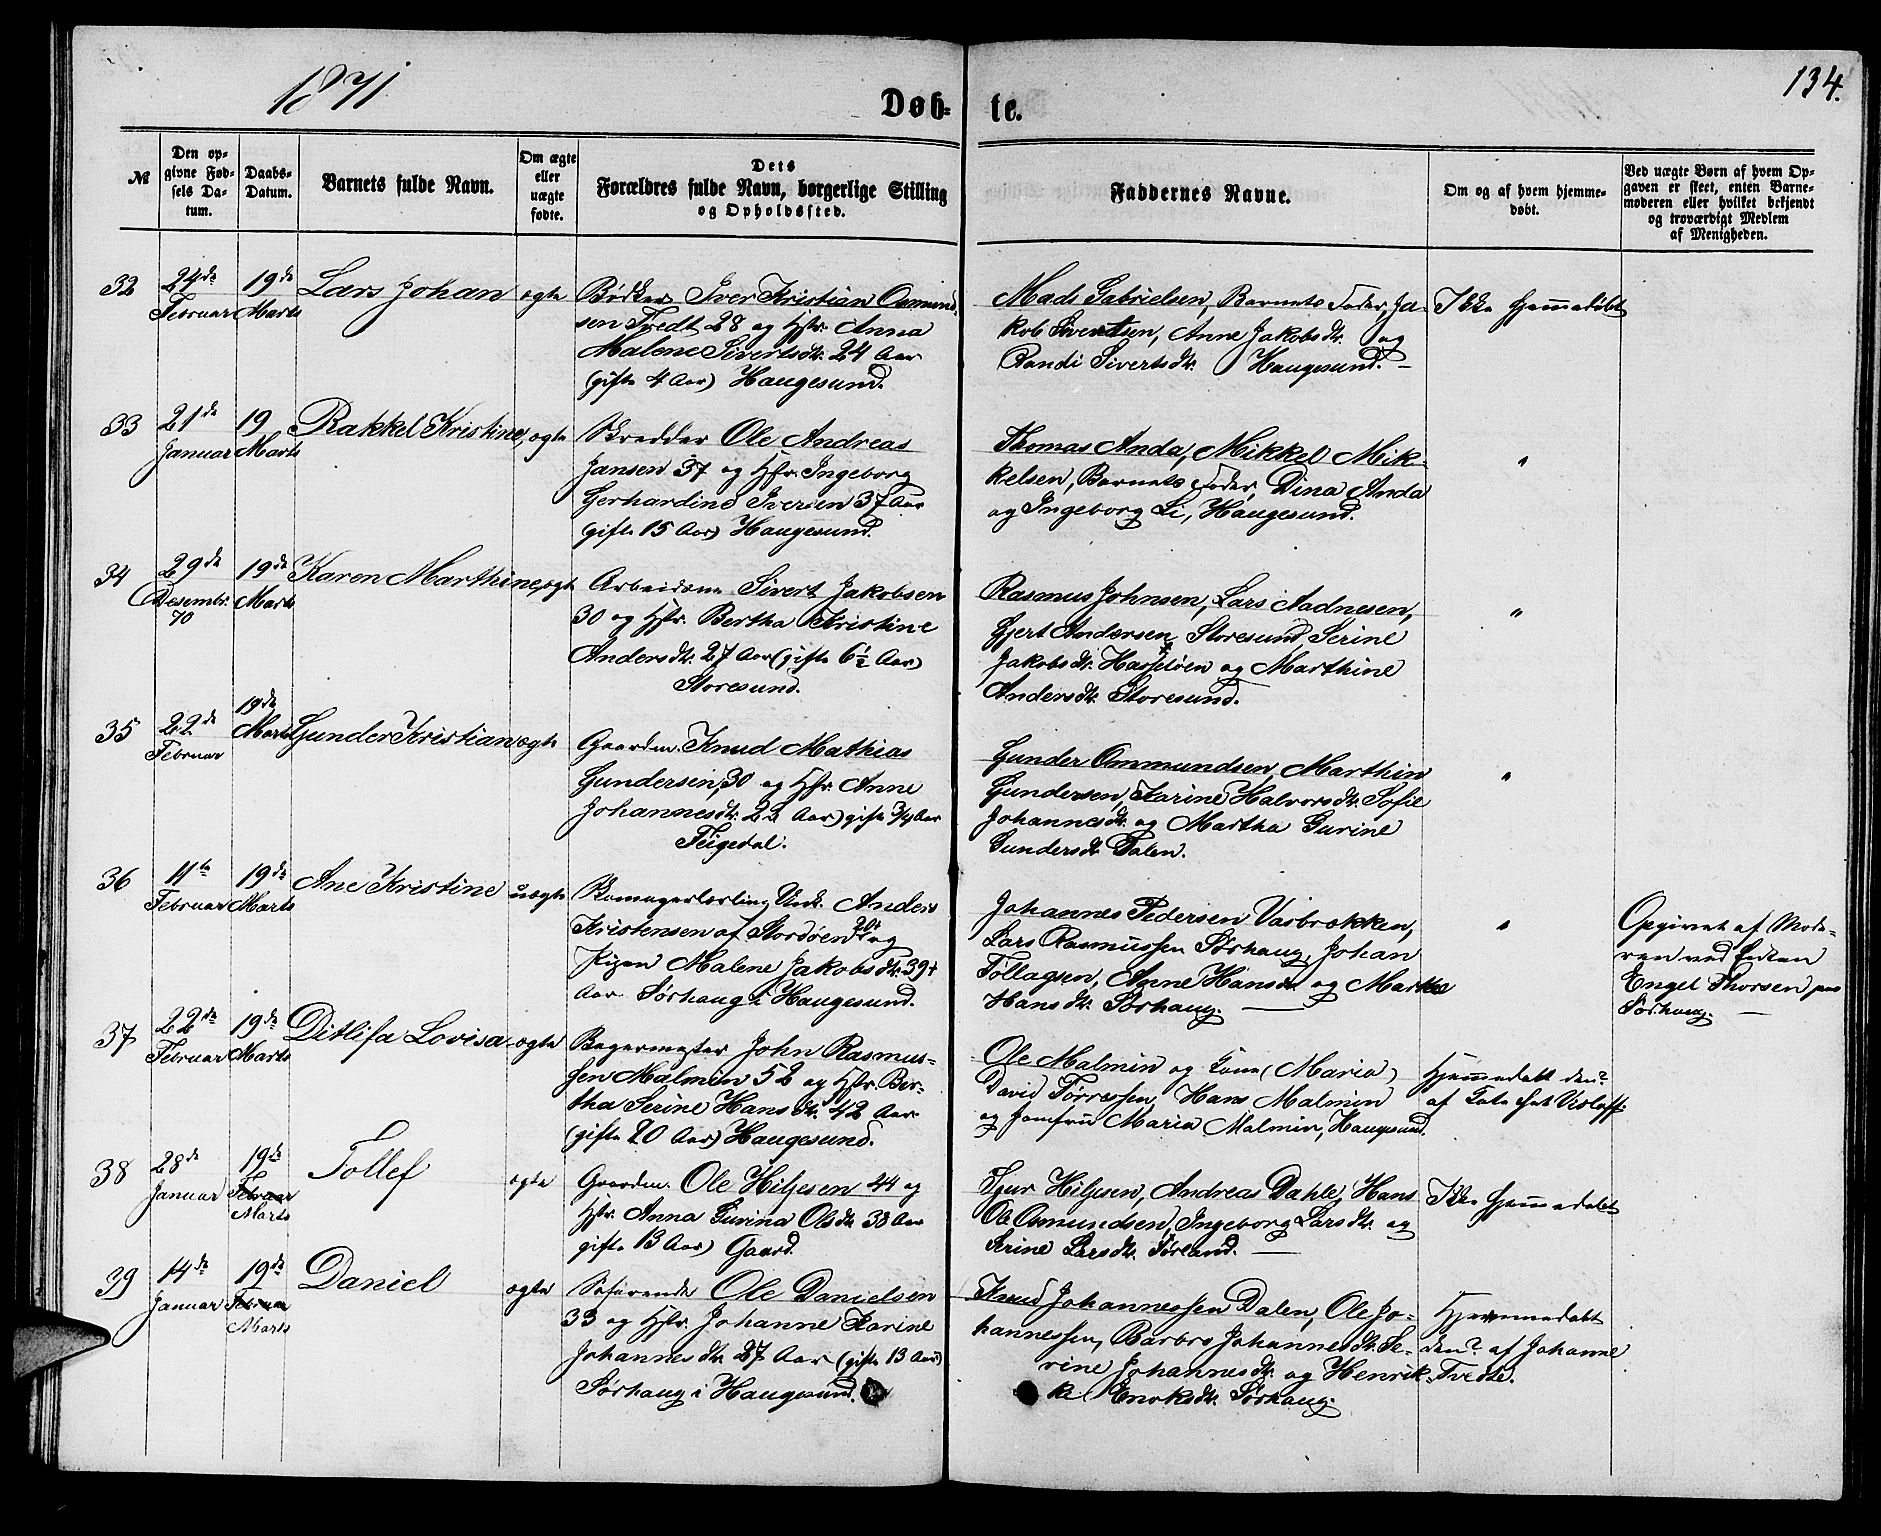 1871
134.
Døb-
te.
№
Den op-
givne Fød-
sels Da-
tum.
Daabs-
Datum.
Barnets fulde Navn.
Om ægte
eller
uægte
fødte.
Dets
Forældres fulde Navn, borgerlige Stilling
og Opholdssted.
Faddernes Navne.
Om og af hvem hjemme-
døbt.
Ved uægte Børn af hvem Op-
gaven er skeet, enten Barne-
moderen eller hvilket bekjendt
og troværdigt Medlem
af Menigheden.
32
24de
Februar
19de
Marts
Lars Johan
ægte
Bødker Iver Kristian Osmund-
sen Tvedt 28 og Hstr. Anna
Malene Sivertsdtr. 24 Aar
(gifte 4 Aar) Haugesund.
Mads Gabrielsen, Barnets Fader, Ja-
kob Sivertsen, Anne Jakobsdtr. og
Randi Sivertsdtr. Haugesund.
Ikke hjemmedøbt
33
21de
Januar
19
Marts
Rakkel Kristine,
ægte
Skredder Ole Andreas
Jansen 37 og Hstr. Ingeborg
Gerhardine Iversen 37 Aar
(gifte 15 Aar) Haugesund.
Thomas Anda, Mikkel Mik-
kelsen, Barnets Fader, Dina Anda
og Ingeborg Li, Haugesund.
"
34
29de
Desembr.
70
19de
Marts
Karen Marthine,
ægte
Arbeidsm. Sivert Jakobsen
30 og Hstr. Bertha Kristine
Andersdtr. 27 Aar (gifte 6½ Aar)
Storesund.
Rasmus Johnsen, Lars Aadnesen,
Gjert Andersen Storesund, Serine
Jakobsdtr. Hasseløen og Marthine
Andersdtr. Storesund.
"
35
22de
Februar
19de
Marts
Gunder Kristian
ægte
Gaardm. Knud Mathias
Gundersen, 30 og Hstr. Anne
Johannesdtr. 22 Aar) gifte ¾ Aar
Teigedal.
Gunder Ommundsen, Marthin
Gundersen, Karine Halvorsdtr. Sofie
Johannesdtr. og Martha Gurine
Gundersdtr. Dalen.
"
36
11te
Februar
19de
Marts
Ane Kristine
uægte
Skomagerlærling Unk. Anders
Kristensen af Stordøen 20+ og
Pigen Malene Jakobsdtr. 39+
Aar. Sørhaug i Haugesund.
Johannes Pedersen Vasbrekken,
Lars Rasmussen Sørhaug, Johan
Tollagsen, Anne Hansdtr. og Marthe
Hansdtr. Sørhaug.
"
Opgivet af Mode-
ren ved Enken
Engel Thorsen paa
Sørhaug.
37
22de
Februar
19de
Marts
Ditlifa Lovisa
ægte
Bagermester John Rasmus-
sen Malmin 52 og Hstr. Ber-
tha Serine Hansdtr. 42 Aar
(gifte 20 Aar) Haugesund.
Ole Malmin og Kone (Maria)
David Tørressen, Hans Malmin
og Jomfru Maria Malmin, Haugesund.
Hjemmedøbt den?
af
38
28de
Januar
19de
Februar
Marts
Tollef
ægte
Gaardm. Ole Hiljesen 44 og
Hstr. Anna Gurina Olsdtr. 38 Aar
gifte 13 Aar) Gaard.
Sjur Hiljesen, Andreas Dahle, Hans
Ole Osmundsen, Ingeborg Larsdtr. og
Serine Larsdtr. Sørland.
Ikke hjemmedøbt
39
14de
Januar
19de
Februar
Marts
Daniel
ægte
Søfarende Ole Danielsen
33 og Hstr. Johanne Karine
Johannesdtr. 27 Aar (gifte 13 Aar)
Sørhaug i Haugesund.
Knud Johannessen Dalen, Ole Jo-
hannessen, Barbro Johannesdtr. Se-
rine Johannesdtr. og Henrik-
ke Enoksdtr. Sørhaug.
Hjemmedøbt
den? af Johanne
Tvedte.